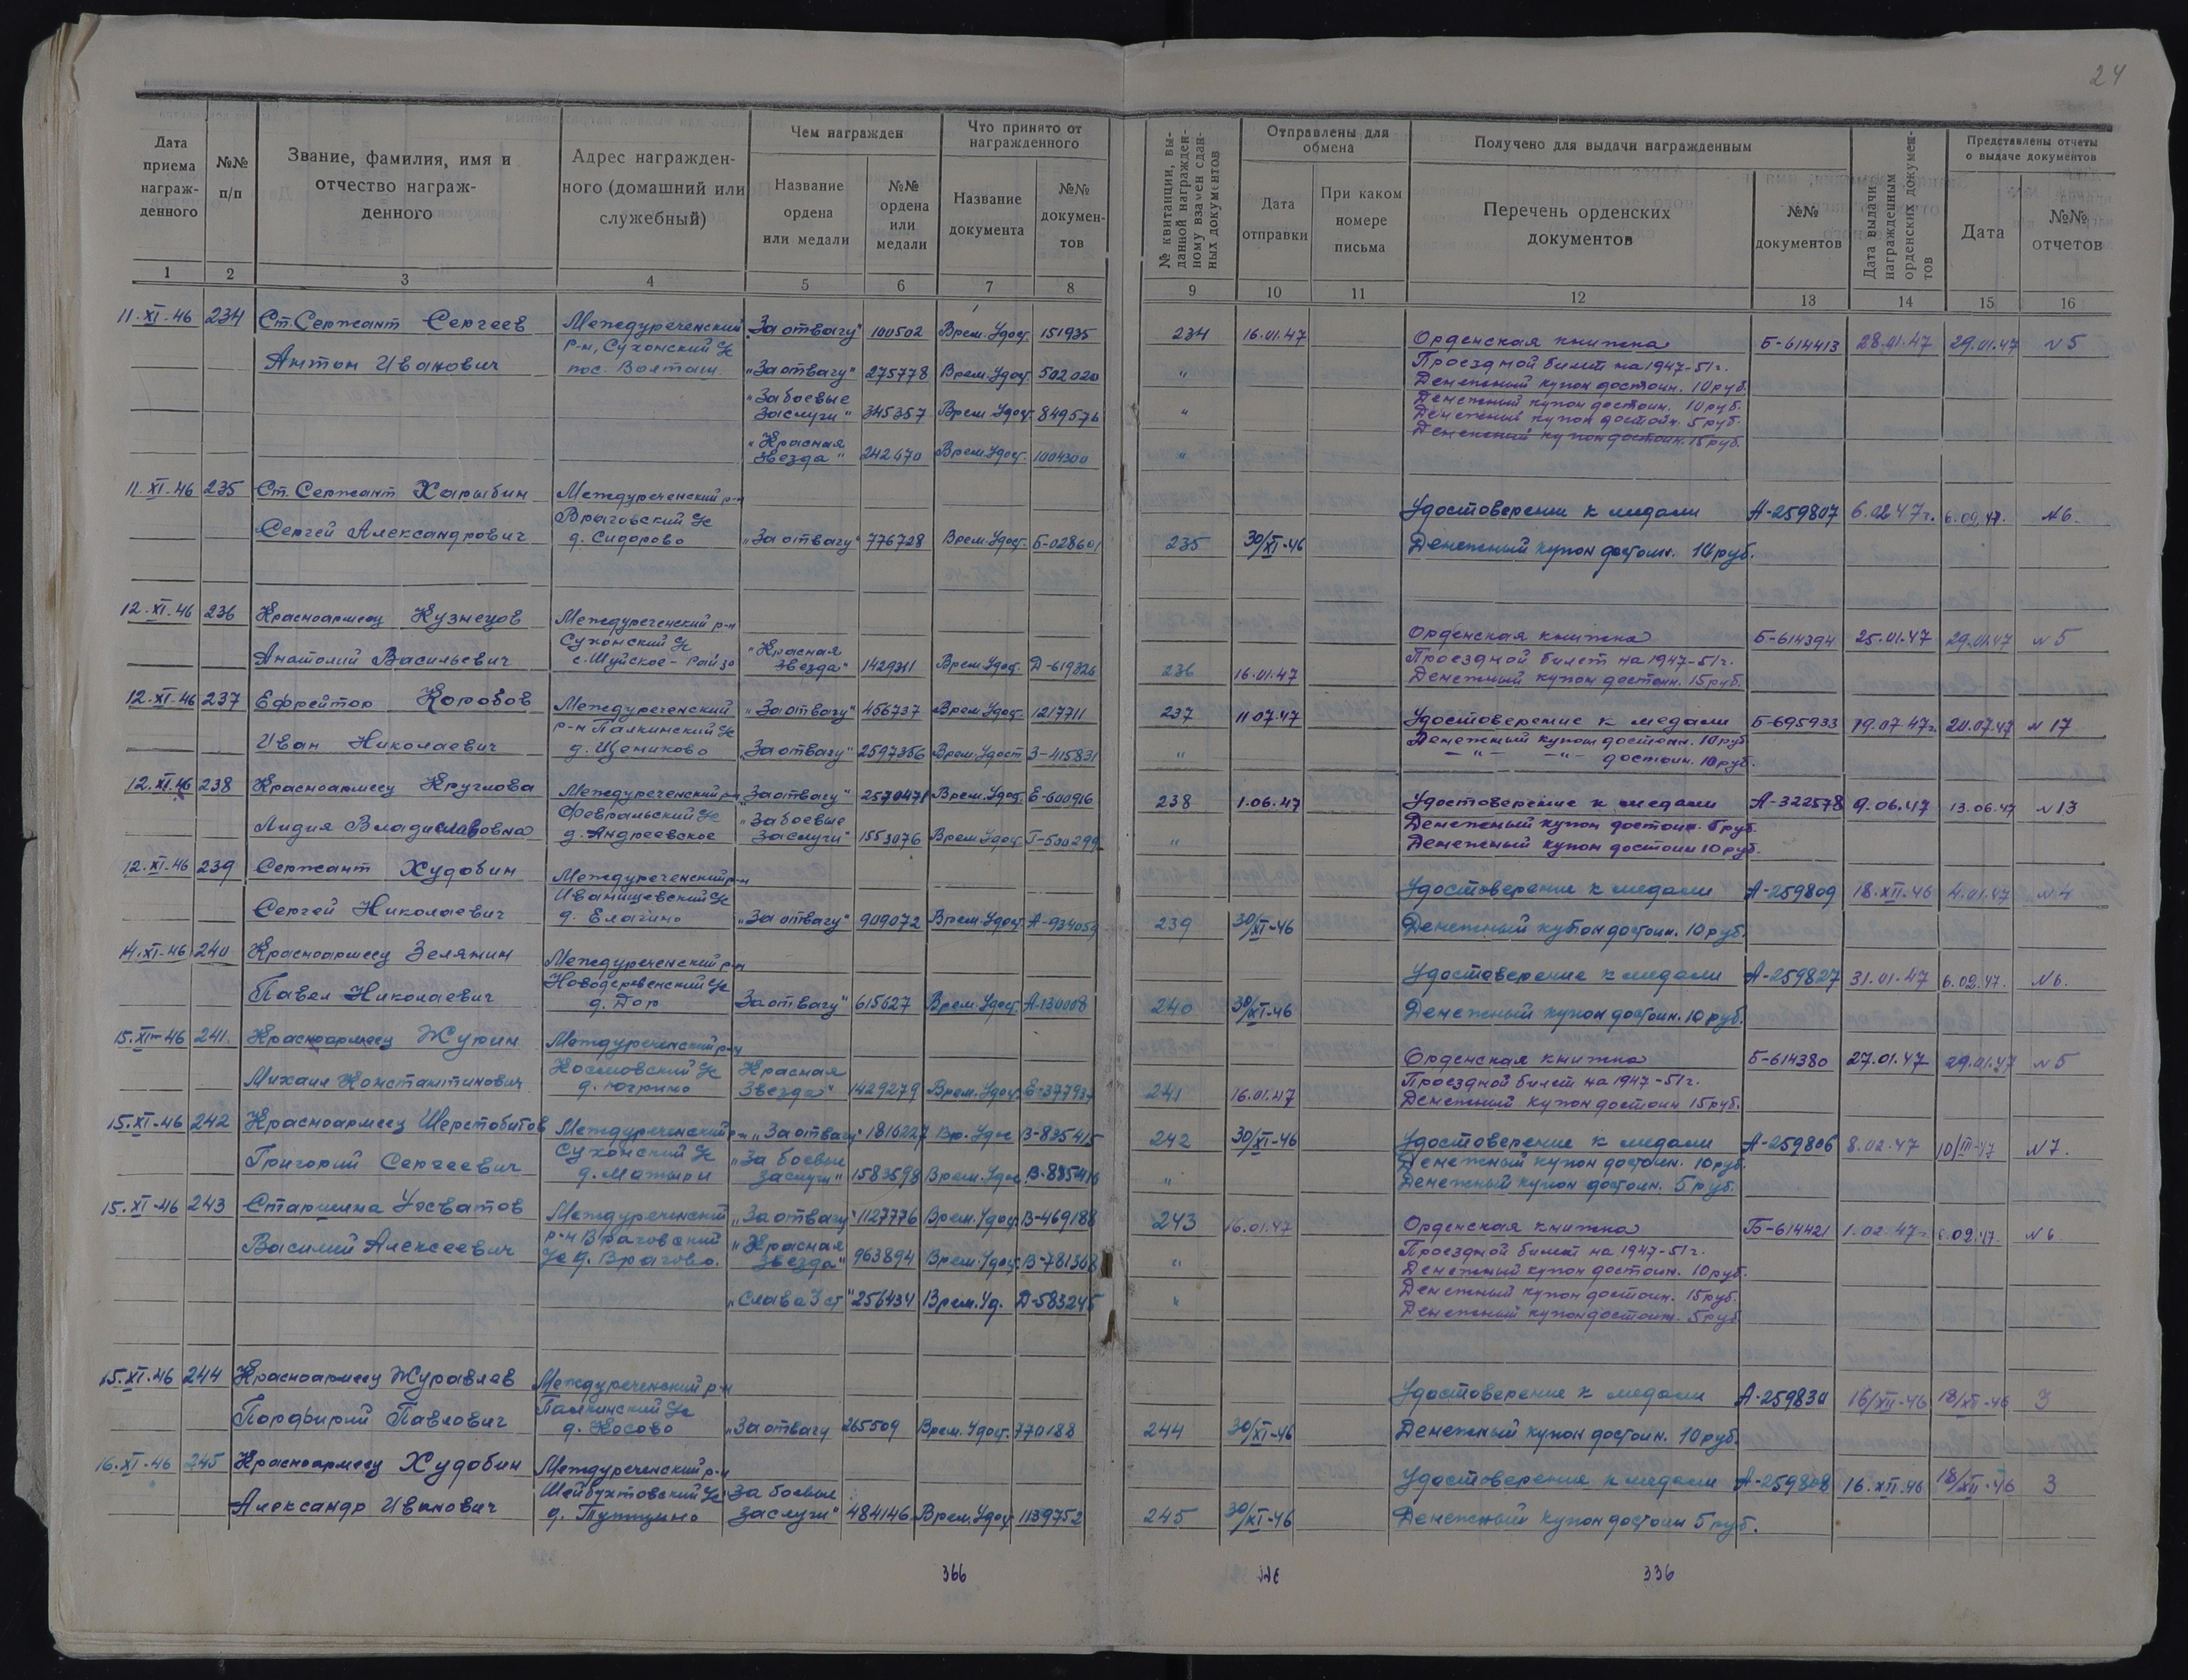 24
Дата приема награж-денного
№№ п/п
Звание, фамилия, имя и отчество награж-денного
Адрес награжден-ного (домашний или служебный)
Чем награжден
Название ордена или медали
№№ ордена или медали
Что принято от награжденного
Название документа
№№ докумен-тов
№ квитанции, вы-данной награжден-ному взамен сдан-ных документов
Отправлены для обмена
Дата отправки
При каком номере письма
Получено для выдачи награжденным
Перечень орденских документов
№№ документов
Дата выдачи награжденным орденских докумен-тов
Представлены отчеты о выдаче документов
Дата
№№ отчетов
1 2 3 4 5 6 7 8 9 10 11 12 13 14 15 16
11.XI.46 234 Ст. Сержант Сергеев Междуреченский "За отвагу" 100502 Врем. Удост. 151935 234 16.01.47 Орденская книжка Б-614413 28.01.47 29.01.47 №5
Антон Иванович р-н, Сухонский с/с пос. Волташ "За отвагу" 275778 Врем. Удост. 502020 " Проездной билет на 1947-51г.
Денежный купон достоин. 10 руб.
"За боевые заслуги" 345357 Врем. Удост. 849576 " Денежный купон достоин. 10 руб.
Денежный купон достоин. 5 руб.
"Красная звезда" 242670 Врем. Удост. 1004300 " Денежный купон достоин. 15 руб.
11.XI.46 235 Ст. Сержант Харыбин Междуреченский р-н Удостоверение к медали А-259807 6.02.47г. 6.02.47. №6.
Сергей Александрович Враговский с/с д. Сидорово "За отвагу" 776728 Врем. Удост. Б-028601 235 30/XI-46 Денежный купон достоин. 10 руб.
12.XI.46 236 Красноармеец Кузнецов Междуреченский р-н Орденская книжка Б-614394 25.01.47 29.01.47 №5
Анатолий Васильевич Сухонский с/с с. Шуйское - Райзо "Красная звезда" 1429311 Врем. Удост. Д-619326 236 16.01.47 Проездной билет на 1947-51г.
Денежный купон достоин. 15 руб.
12.XI.46 237 Ефрейтор Коробов Междуреченский "За отвагу" 456737 Врем. Удост. 1217711 237 11.07.47 Удостоверение к медали Б-695933 19.07.47г. 20.07.47 №17
Иван Николаевич р-н Палкинский с/с д. Щениково "За отвагу" 2597356 Врем. Удост. З-415831 " Денежный купон достоин. 10 руб.
— " — — " — достоин. 10 руб.
12.XI.46 238 Красноармеец Круглова Междуреченский р-н "За отвагу" 2570471 Врем. Удост. Е-600916 238 1.06.47 Удостоверение к медали А-322578 9.06.47 13.06.47 №13
Лидия Владиславовна Февральский с/с д. Андреевское "За боевые заслуги" 1553076 Врем. Удост. Г-530299 " Денежный купон достоин. 5 руб.
Денежный купон достоин 10 руб.
12.XI.46 239 Сержант Худобин Междуреченский р-н Удостоверение к медали А-259809 18.XII.46 4.01.47 №4
Сергей Николаевич Иванищевский с/с д. Елагино "За отвагу" 909072 Врем. Удост. А-934059 239 30/XI-46 Денежный купон достоин. 10 руб.
14.XI.46 240 Красноармеец Зелянин Междуреченский р-н Удостоверение к медали А-259827 31.01.47 6.02.47. №6.
Павел Николаевич Новодеревенский с/с д. Дор За отвагу" 615627 Врем. Удост. А-130008 240 30/XI-46 Денежный купон достоин. 10 руб.
15.XI-46 241. Красноармеец Жукин Междуреченский р-н Орденская книжка Б-614380 27.01.47 29.01.47 №5
Михаил Константинович с/с д. Югрино Красная Звезда" 1429279 Врем. Удост. Е-377937 241 16.01.47 Проездной билет на 1947-51г.
Денежный купон достоин 15 руб.
15.XI-46 242 Красноармеец Шерстобитов Междуреченский р-н "За отвагу" 1816227 Вр. Удос В-835415 242 30/XI-46 Удостоверение к медали А-259806 8.02.47 10/III-47 №7.
Григорий Сергеевич Сухонский с/с д. Мотыри "За боевые заслуги" 1583598 Врем. Удос В-835416 " Денежный купон достоин. 10 руб.
Денежный купон достоин. 5 руб.
15.XI-46 243 Старшина Ухватов Междуреченский "За отвагу" 1127776 Врем. Удос. В-469188 243 16.01.47 Орденская книжка Б-614421 1.02.47г 6.02.47. №6
Василий Алексеевич р-н Враговский с/с д. Врагово. "Красная звезда" 963894 Врем. Удос. В-781368 " Проездной билет на 1947-51г.
Денежный купон достоин. 10 руб.
"Слава 3 ст" 256434 Врем. Уд. Д-583245 " Денежный купон достоин. 15 руб.
Денежный купон достоин. 5 руб
15.XI.46 244 Красноармеец Журавлев Междуреченский р-н Удостоверение к медали А-259830 16/XII-46 18/XII-46 3
Порфирий Павлович Палкинский с/с д. Косово "За отвагу 265509 Врем. Удост. 770188 244 30/XI-46 Денежный купон достоин. 10 руб.
16.XI-46 245 Красноармеец Худобин Междуреченский р-н Удостоверение к медали А-259808 16.XII.46 18/XII-46 3
Александр Иванович Шейбухтовский с/с д. За боевые заслуги" 484146 Врем. Удос 1139752 245 30/XI-46 Денежный купон достоин 5 руб.
366
336